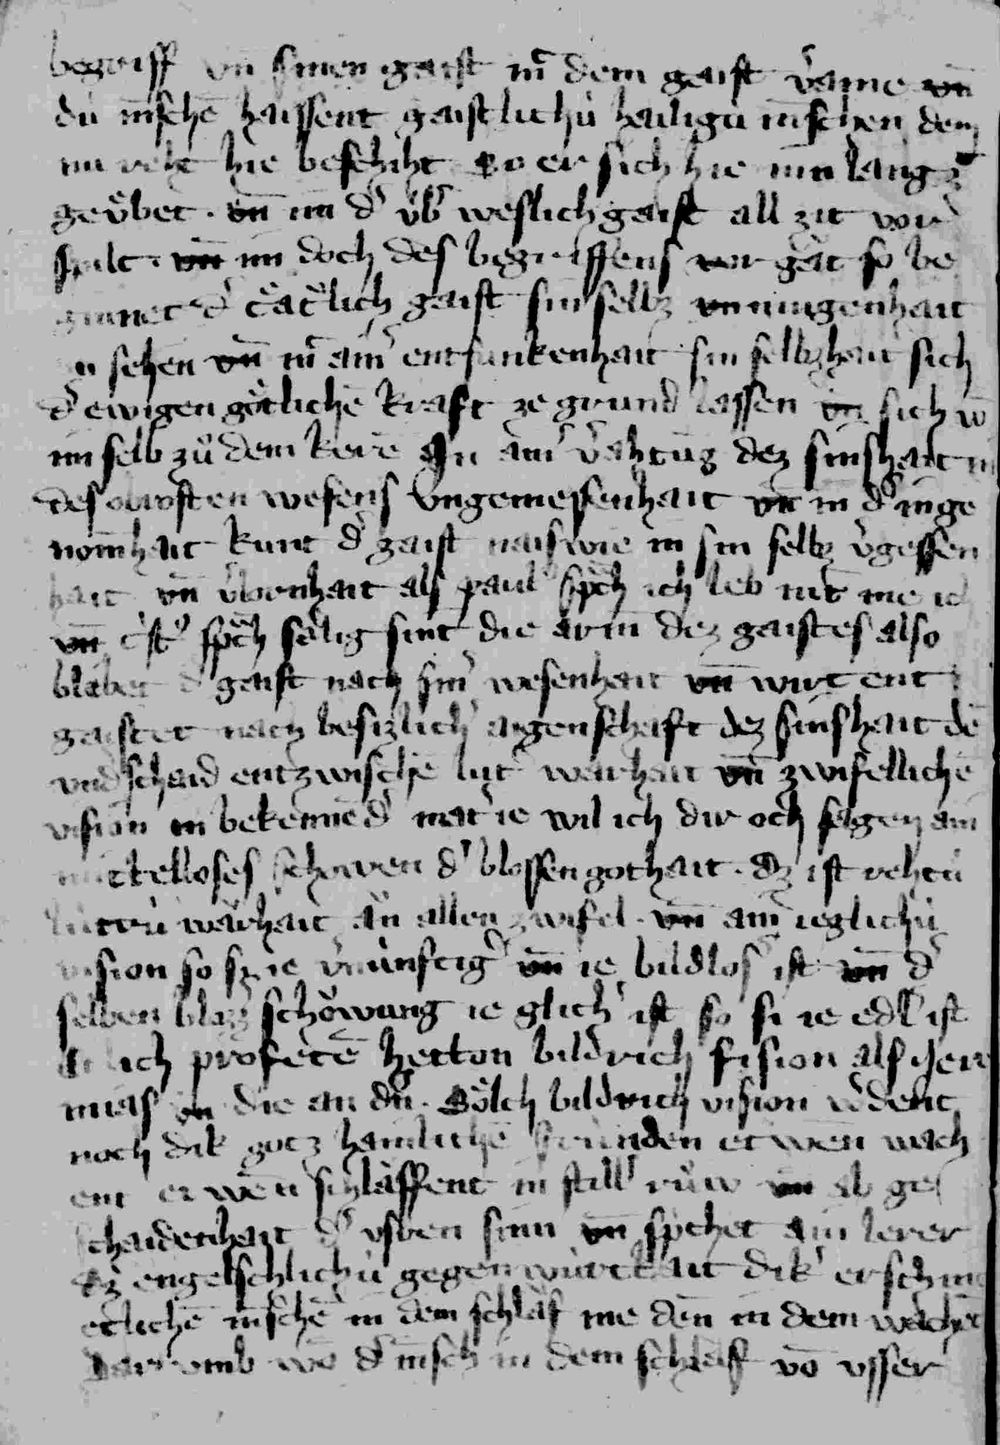 begriff vn̄ sinen gaist mͥ dem gaist v̾aine vn̄
dú mēschē haissent gaistlichú hailigú mēschen dem
nu reht hie beschiht So er sich hie inn lang
geu̇bet . vn̄ im d̾ v̇b̾ weslich gaist all zit vor
spilt . vn̄ im doch des begriffens vor gat so be
ginnet d̾ gaist sin selbz vnmugenhait
sehen vn̄ mͥ ain̾ entsunkenhait sin selbzhait sich
d̾ ewigen gȯtlichē kraft ze grund lassen vn̄ sich vō
im selb zu̇ dem kerē In ain̾ v̾ahtūg dez sinshait in
des obrosten wesens vngemessenhait vn̄ in d̾ inge
nom̄hait kunt d̾ gaist in sin selbz v̾gessen
hait vn̄ v̾lornhait als paul᾽ sp̄ch ich leb nút me ich
vn̄ c̾st᾽ sp̄ch sȧlig sint die arm̄ dez gaistes also
blibet d̾ gaist nach sin̾ wesenhait vn̄ wirt ent
gaistet nach besizlich̾ aigenschaft dez sinshait dē
vnd̾schaid entzwischē lut̾ warhait vn̄ zwifellichē
vision in bekennēd̾ mat̾ie wil ich dir och sagen ain
mittelloses schowen d̾ blossen gothait . dz ist rehtú
lutrú warhait ān allen zwifel . vn̄ ain ieglichú
vision so si ie v̾núnftig̾ vn̄ ie bildlos̾ ist vn̄ d̾
selben blozz̾ schȯwung ie glich̾ ist so si ie edl̾ ist
Etlich profetē hetton bildrich fision als Jere
mias vn̄ die an d̾n . Sȯlch bildrich vision w̾dent
noch dik gotz haimlichē frúnden etwen̄ wach
ent etwen̄ schlȧffent in still̾ ru̇w vn̄ ab ge
schaidenhait d̾ vssren sinn vn̄ sp̄chet ain lerer
dz engelschlichú gegenwúrtkait dik̾ erschine
etlichē mēschē in dem schlaf me den̄ in dem wachē
Darvmb wō d̾ mēsch in dem schlaf vō vsser